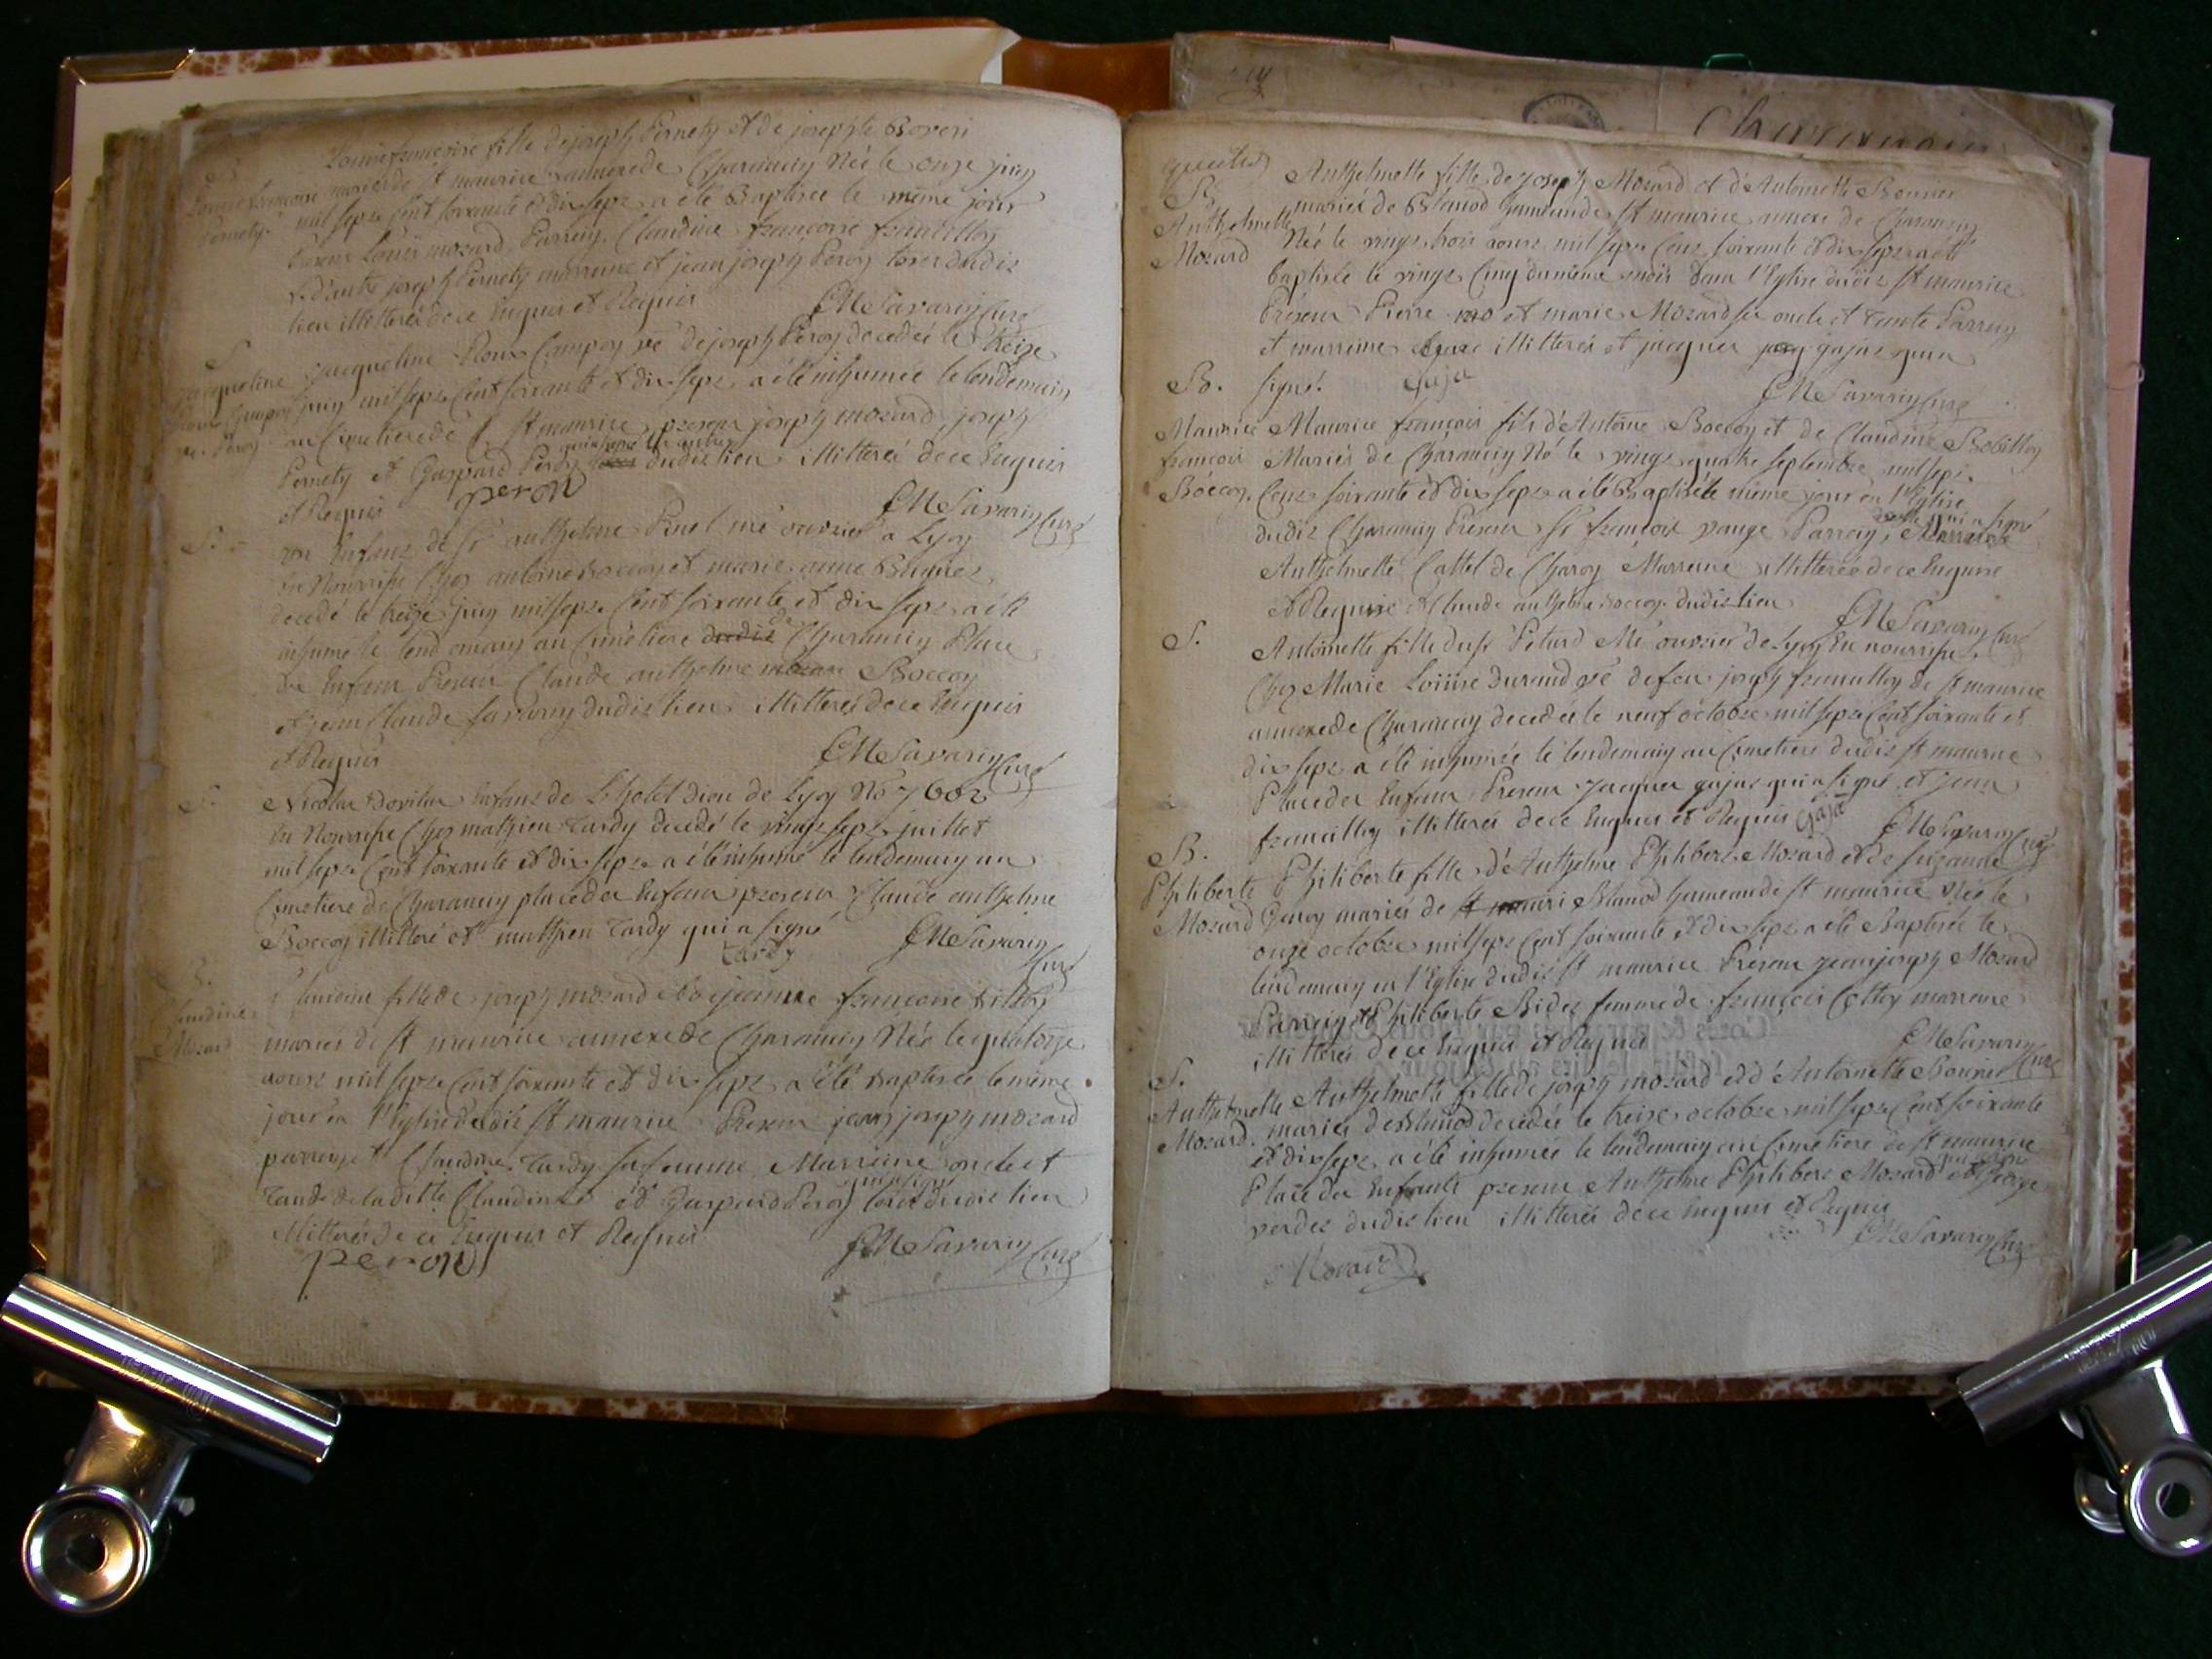 Louise francoise fille de joseph Pernety et de josephte Boveri
Louise francoise mariés de St maurice annexe de Charancin Née le onze juin
Pernety. mil sept cent soixante et dix sept a été Baptisée le même jour
Présens Louis mozard Parrein, Claudine francoise
joseph Pernety marreine et jean joseph Peron tous dudit
lieu illitterés de ce Enquis et Requis
CM Savarin Curé
S.
Jacqueline Jacqueline Roux Campon ve de joseph Peron decedée le treize
Roux Campon juin mil sept cent soixante et dix sept a été inhumée le lendemain
ve Peron au Cimetiere de St maurice presens joseph mozard, joseph
Pernety et Gaspard Peron qui a signé les autres dudit lieu illitterés de ce Enquis
et Requis peron
CM Savarin Curé
S.
un Enfant de Sr anthelme Pinel me ouvrier a Lyon
en Nourrisse Chez antoine Boccon et marie anne
decedé le treize juin mil sept Cent soixante et dix sept a été
inhumé le lendemain au Cimetiere dudit de Charancin Place
des Enfans Presens Claude anthelme Boccon
et jean Claude Savarin dudit lieu illitterés de ce Enquis
et Requis
CM Savarin Curé
S.
Nicolas Enfant de L'hotel dieu de Lyon No 7602
En Nourrisse Chez mathieu tardy decedé le vingt sept juillet
mil sept Cent soixante et dix sept a été inhumé le lendemain au
Cimetiere de Charancin place des Enfans presens Claude anthelme
Boccon illitteré et mathieu tardy qui a signé
tardy CM Savarin Curé
B.
Claudine Claudine fille de joseph mozard et de jeanne francoise
Mozard mariés de St maurice annexe de Charancin Née le quatorze
aoust mil sept Cent soixante et dix sept a été baptisée le même
jour en l'Eglise dudit St maurice Presens jean joseph mozard
parrein et Claudine tardy sa femme Marreine oncle et
tante de ladite Claudine et Gaspard Peron qui a signé tous dudit lieu
illitterés de ce Enquis et Requis
peron CM Savarin Curé
Cheveyrieu
B. Anthelmette fille de joseph Mozard et d'Antoinette Bonnier
Anthelmette mariés de Blanod hameau de St maurice annexe de Charancin
Mozard Née le vingt trois aoust mil sept Cent soixante et dix sept a été
baptisée le vingt Cinq du même mois dans l'Eglise dudit St maurice
Présens Pierre et marie Mozard ses oncle et tante Parrein
et marreine illitterés et jacques gajas qui a
signé. Gaja
CM Savarin Curé
B.
Maurice Maurice françois fils d'Antoine Boccon et de Claudine Bobillon
françois Mariés de Charancin Né le vingt quatre septembre mil sept
Boccon. Cent soixante et dix sept a été Baptisé le même jour en l'Eglise
dudit Charancin Presens Sr françois vauge Parrein, qui a signé
Anthelmette Cattet de Charon Marreine illitterée de ce Enquise
et Requise et Claude anthelme Boccon dudit lieu
CM Savarin Curé
S.
Antoinette fille du Sr Petard Me ouvrier de Lyon En nourrisse
Chez Marie Louise Durand ve de feu joseph de St maurice
annexe de Charancin decedée le neuf octobre mil sept Cent soixante et
dix sept a été inhumée le lendemain au Cimetiere dudit St maurice
Place des Enfans Presens Jacques gajas qui a signé et jean
illitteré de ce Enquis et Requis Gaja
CM Savarin Curé
B.
Philiberte Philiberte fille d'Anthelme Philibert Mozard et de suzanne
Mozard mariés de Blanod hameau de St maurice Née le
onze octobre mil sept Cent soixante et dix sept a été Baptisée le
lendemain en l'Eglise dudit St maurice Presens jean joseph Mozard
Parrein et Philiberte femme de françois marreine
illitterés de ce Enquis et Requis
CM Savarin Curé
S.
Anthelmette Anthelmette fille de joseph mozard et d'Antoinette Bonnier
Mozard. mariés de Blanod decedée le treize octobre mil sept Cent soixante
et dix sept a été inhumée le lendemain au Cimetiere de St maurice
Place des Enfants presens Anthelme Philibert Mozard qui a signé et George
verdet dudit lieu illitterés de ce Enquis et Requis
CM Savarin Curé
Mozard